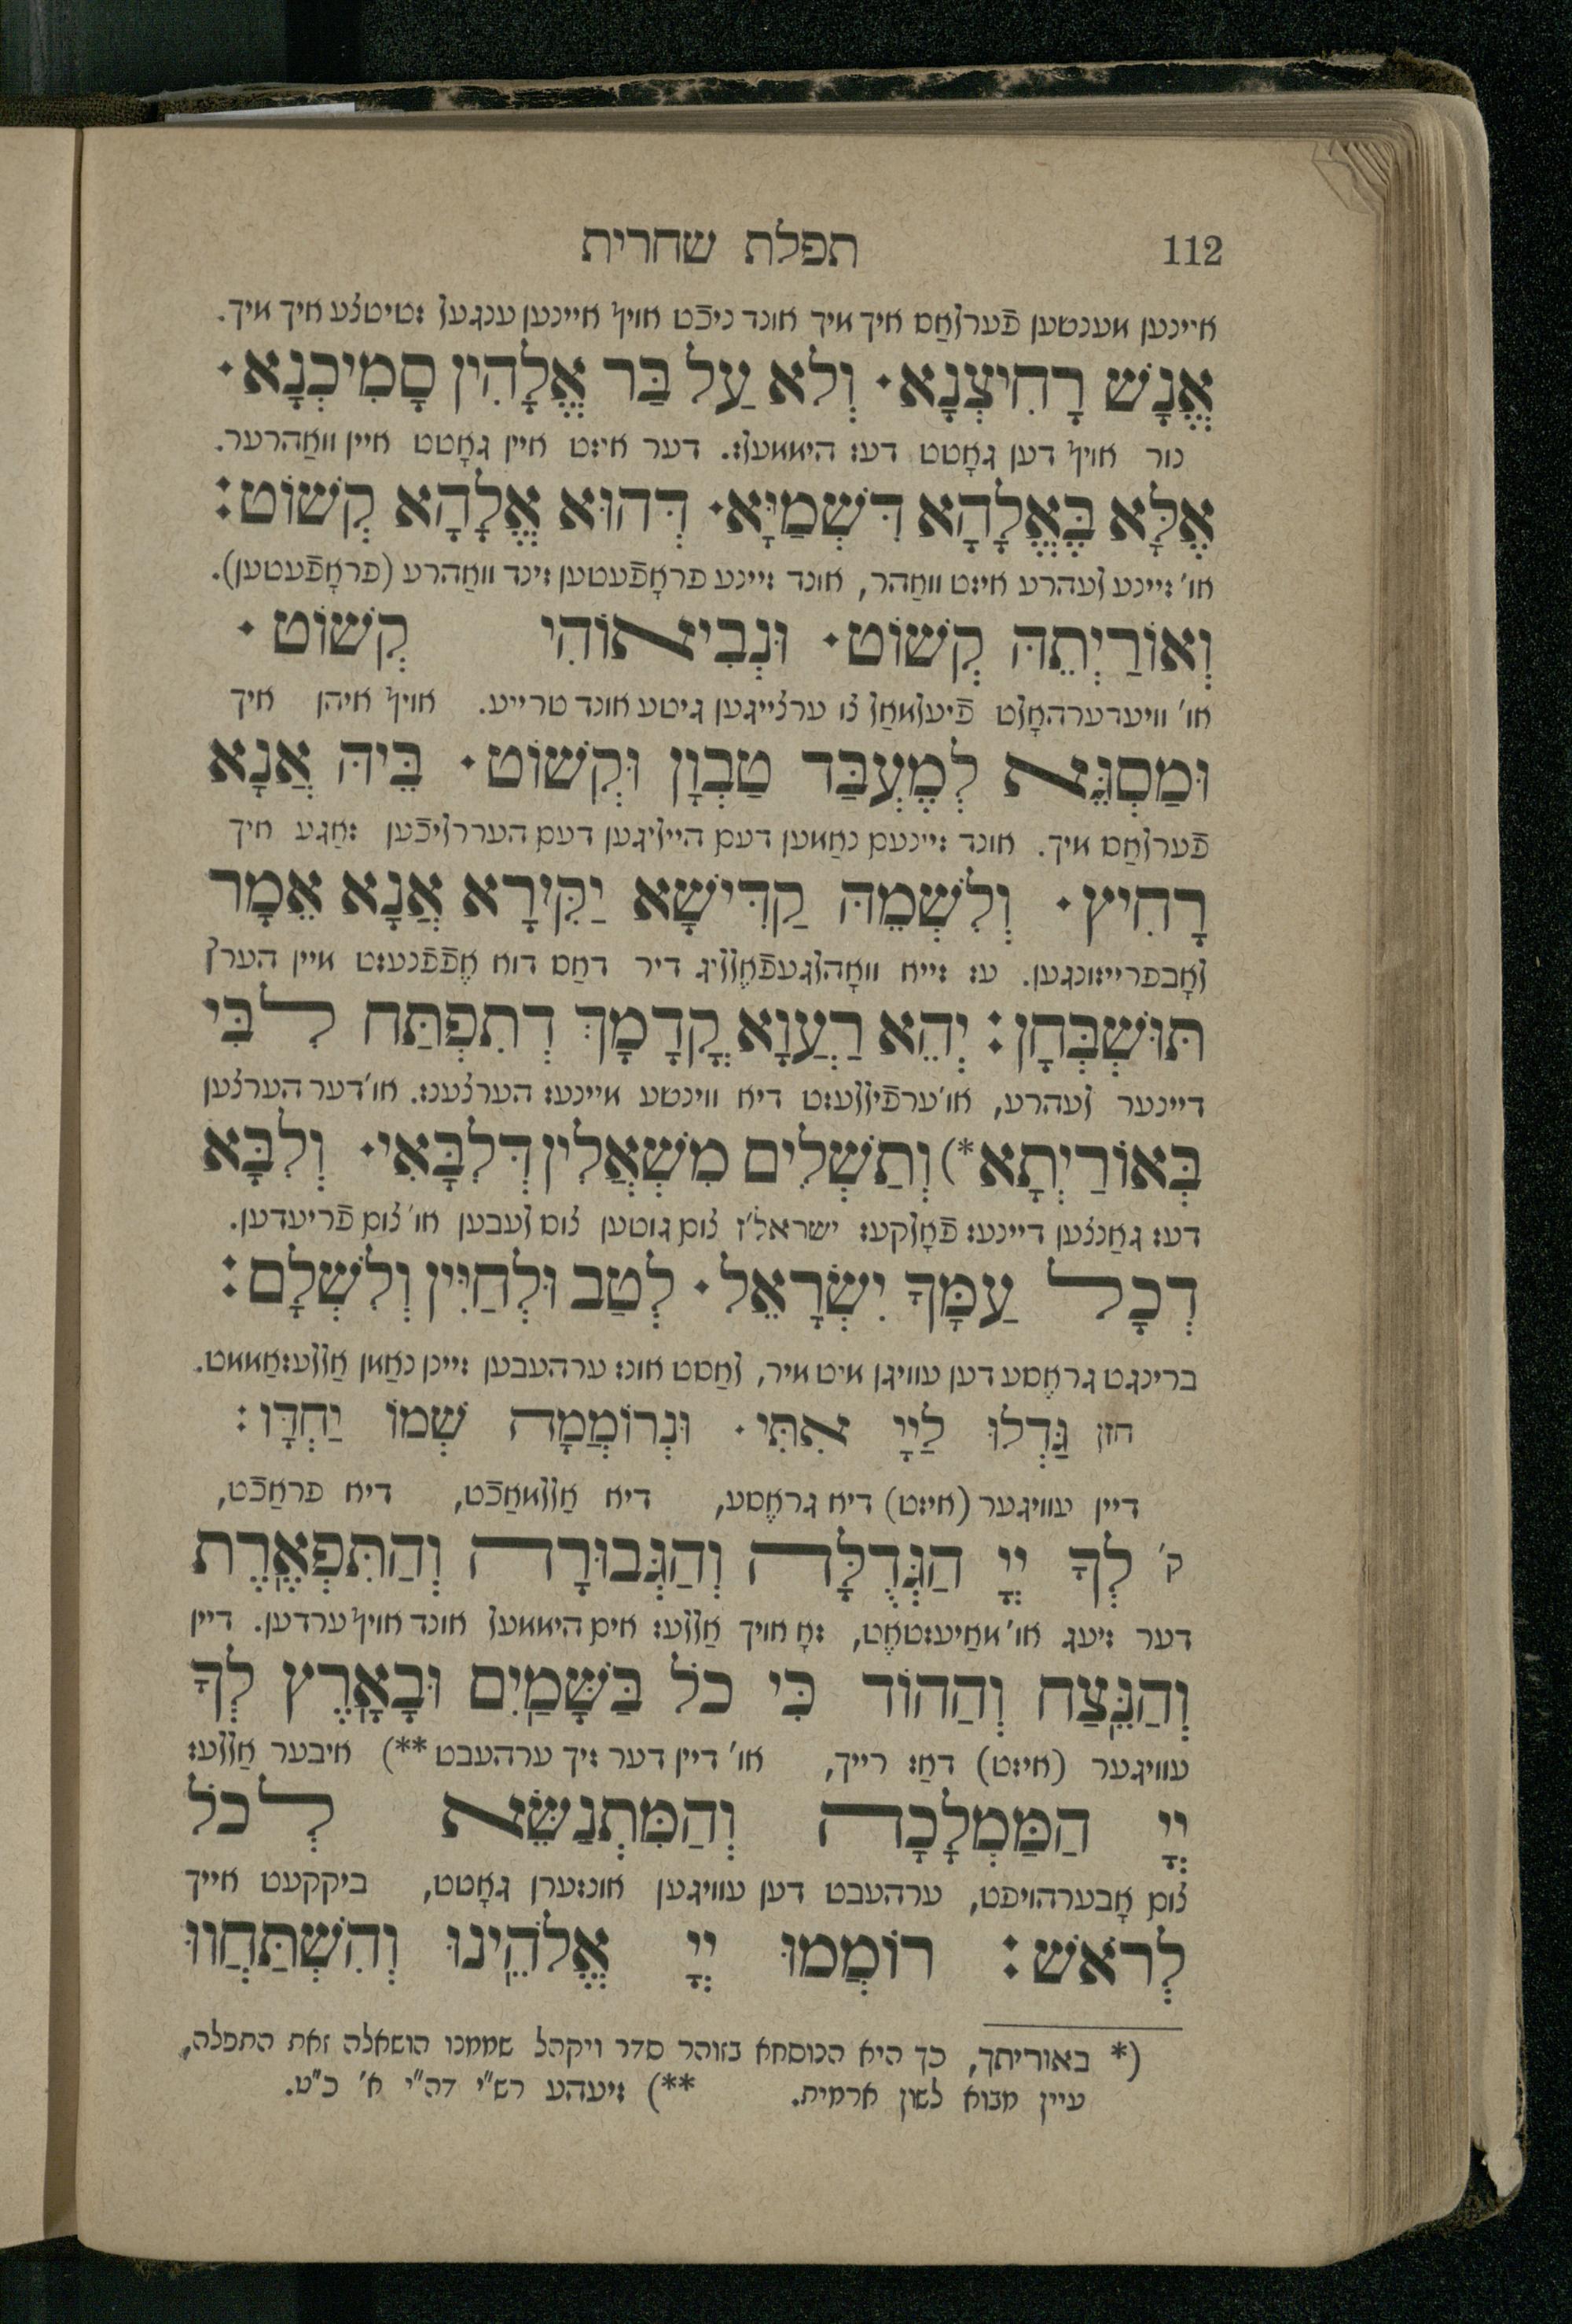 112 תפלת שחרית
איינען מענשען פֿערלאַס איך מיך אונד ניכֿט אויף איינען ענגעל שטיטצע איך מיך.
אֱנָשׁ רָחִיצְנָא· וְלא עַל בַּר אֱלָהִין סָמִיכְנָא·
נור אויף דען גאָטט דעז היממעלז. דער איזט איין גאָטט איין וואַהרער.
אֶלָּא בֶּאֱלָהָא דִּשְׁמַיָּא· דְּהוּא אֱלָהָא קְשׁוֹט:
או׳ זיינע לעהרע איזט וואַהר, אונד זיינע פראָפֿעטען זינד וואַהרע (פראָפֿעטען).
וְאוֹרַיְתֵהּ קְשׁוֹט· וּנְבִיאוֹהִי קְשׁוֹט·
או׳ ווידערהאָלט פֿיעלמאַל צו ערצייגען גיטע אונד טרייע. אויף איהן איך
וּמַסְגֵּא לְמֶעְבַּד טַבְוָן וּקְשׁוֹט· בֵּיהּ אֲנָא
פֿערלאַס מיך. אונד זיינעם נאַמען דעם הייליגען דעם העררליכֿען זאַגע איך
רָחִיץ· וְלִשְׁמֵהּ קַדִּישָׁא יַקִּירָא אֲנָא אֵמָר
לאָבפרייזונגען. עז זייא וואָהלגעפֿאֶלליג דיר דאַס דוא אֶפֿפֿנעזט מיין הערץ
תּוּשְׁבְּחָן: יְהֵא רַעֲוָא קֳדָמָךְ דְתִפְתַּח לִבִּי
דיינער לעהרע, או׳ ערפֿיללעזט דיא ווינשע מיינעז הערצענז. או׳ דער הערצען
בְּאוֹרַיְתָא*) וְתַשְׁלִים מִשְׁאֲלִין דְּלִבָּאִי· וְלִבָּא
דעז גאַנצען דיינעז פֿאָלקעז ישראל׳ז צום גוטען צום לעבען או׳ צום פֿריעדען.
דְכָל עַמָּךָ יִשְׂרָאֵל· לְטַב וּלְחַיִּין וְלִשְׁלָם:
ברינגט גראֶסע דען עוויגן מיט מיר, לאַסט אונז ערהעבען זיינן נאַמן אַללעזאַממט.
חזן גַּדְּלוּ לַיְיָ אִתִּי· וּנְרוֹמֲמָה שְׁמוֹ יַחְדָּו:
דיין עוויגער (איזט) דיא גראֶסע, דיא אַללמאַכֿט, דיא פראַכֿט,
ק׳ לְךָ יְיָ הַגְּדֻלָּה וְהַגְּבוּרָה וְהַתִּפְאֶרֶת
דער זיעג או׳ מאַיעזטאֶט, זאָ אויך אַללעז אים היממעל אונד אויף ערדען. דיין
וְהַנֵּצַח וְהַהוֹד כִּי כֹל בַּשָּׁמַיִם וּבָאָרֶץ לְךָ
עוויגער (איזט) דאַז רייך, או׳ דיין דער זיך ערהעבט **) איבער אַללעז
יְיָ הַמַּמְלָכָה וְהַמִּתְנַשֵּׂא לְכֹל
צום אָבערהויפט, ערהעבט דען עוויגען אונזערן גאָטט, ביקקעט אייך
לְרֹאשׁ: רוֹמְמוּ יְיָ אֱלֹהֵינוּ וְהִשְׁתַּחֲווּ
*) באוריתך, כך היא הנוסחא בזוהר סדר ויקהל שממנו הושאלה זאת התפלה,
עיין מבוא לשון ארמית. **) זיעהע רש״י דה״י א׳ כ״ט.